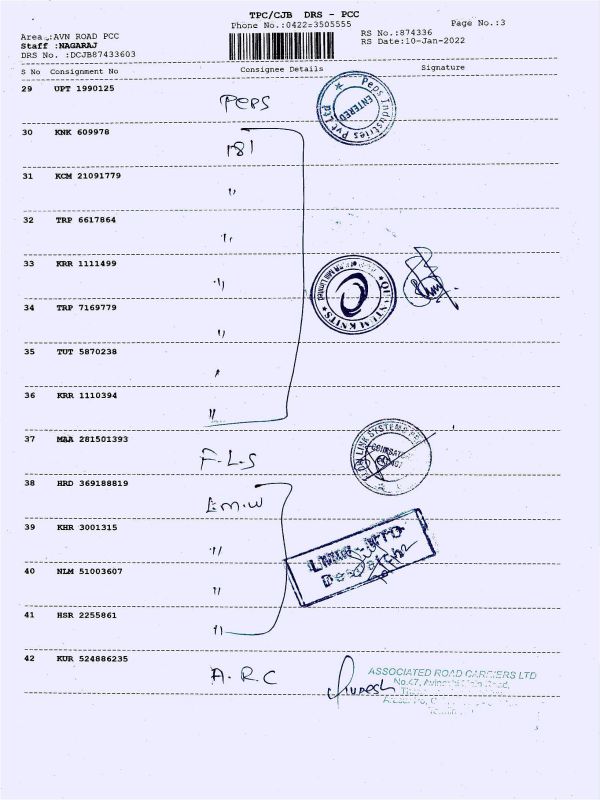 TPC/CJB DRS - PCC
Phone No.:0422-3505555
Page No.:3
Area :AVN ROAD PCC
RS No.:874336
Staff :NAGARAJ
RS Date:10-Jan-2022
DRS No. :DCJB87433603
S No Consignment No Consignee Details Signature
29 UPT 1990125
PEPS
Peps Industries Pvt Ltd
ENTERED
30 KNK 609978
181
31 KCM 21091779
"
32 TRP 6617864
"
33 KRR 1111499
"
QUANTUM KNITS
34 TRP 7169779
"
35 TUT 5870238
"
36 KRR 1110394
"
37 MAA 281501393
F.L.S
38 HRD 369188819
L.M.W
39 KHR 3001315
"
40 NLM 51003607
"
41 HSR 2255861
"
42 KUR 524886235
A.R.C
ASSOCIATED ROAD CARRIERS LTD
No.47,